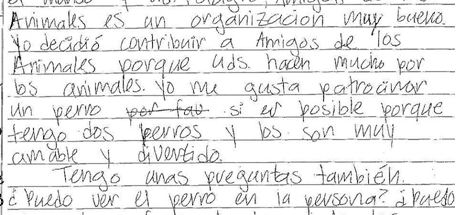 Animales es un organización muy bueno.
Yo decidió contribuir a Amigos de los
Animales porque uds. hacen mucho por
los animales. Yo me gusta patrocinar
un perro por fav si es posible porque
tengo dos perros y los son muy
amable y divertido.
Tengo unas preguntas también.
¿Puedo ver el perro en la persona? ¿Puedo